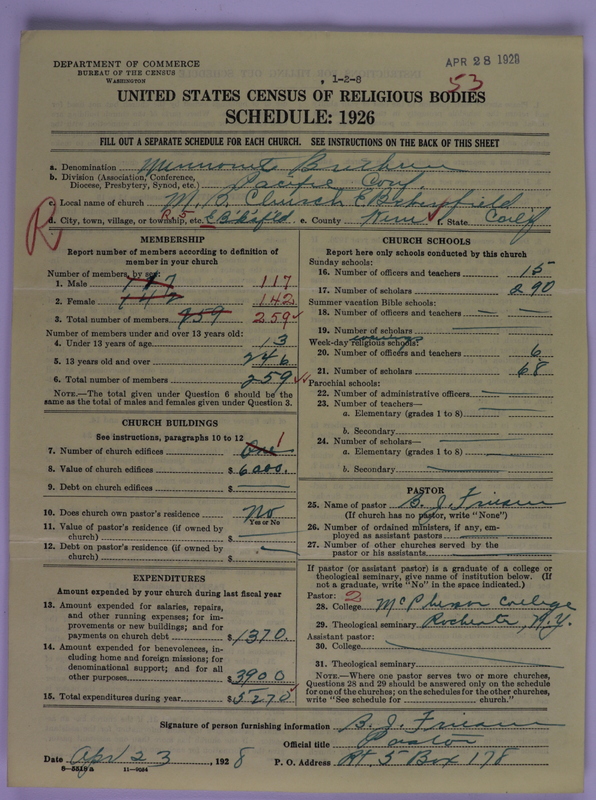 DEPARTMENT OF COMMERCE
BUREAU OF THE CENSUS
WASHINGTON
APR 28 1928
, 1-2-8
53
UNITED STATES CENSUS OF RELIGIOUS BODIES
SCHEDULE: 1926
FILL OUT A SEPARATE SCHEDULE FOR EACH CHURCH. SEE INSTRUCTIONS ON THE BACK OF THIS SHEET
a. Denomination Mennonite Brethren
b. Division (Association, Conference, Diocese, Presbytery, Synod, etc.) Pacific Conf.
c. Local name of church M. B. Church E Bakersfield
d. City, town, village, or township, etc. R. 5 E Bksf'ld e. County Kern f. State Calif
R
MEMBERSHIP
Report number of members according to definition of member in your church
Number of members, by sex:
1. Male 117 117
2. Female 142 142
3. Total number of members 259 259
Number of members under and over 13 years old:
4. Under 13 years of age 13
5. 13 years old and over 246
6. Total number of members 259
NOTE.—The total given under Question 6 should be the same as the total of males and females given under Question 3.
CHURCH BUILDINGS
See instructions, paragraphs 10 to 12
7. Number of church edifices One 1
8. Value of church edifices $ 6000.
9. Debt on church edifices $
10. Does church own pastor's residence No
Yes or No
11. Value of pastor's residence (if owned by church) $
12. Debt on pastor's residence (if owned by church) $
EXPENDITURES
Amount expended by your church during last fiscal year
13. Amount expended for salaries, repairs, and other running expenses; for improvements or new buildings; and for payments on church debt $ 1370.
14. Amount expended for benevolences, including home and foreign missions; for denominational support; and for all other purposes $ 3900
15. Total expenditures during year $ 5270
CHURCH SCHOOLS
Report here only schools conducted by this church
Sunday schools:
16. Number of officers and teachers 15
17. Number of scholars 290
Summer vacation Bible schools:
18. Number of officers and teachers
19. Number of scholars
Week-day religious schools: evenings
20. Number of officers and teachers 6
21. Number of scholars 68
Parochial schools:
22. Number of administrative officers
23. Number of teachers—
a. Elementary (grades 1 to 8)
b. Secondary
24. Number of scholars—
a. Elementary (grades 1 to 8)
b. Secondary
PASTOR
25. Name of pastor B. J. Friesen
(If church has no pastor, write "None")
26. Number of ordained ministers, if any, employed as assistant pastors
27. Number of other churches served by the pastor or his assistants
If pastor (or assistant pastor) is a graduate of a college or theological seminary, give name of institution below. (If not a graduate, write "No" in the space indicated.)
Pastor: 2
28. College McPherson College
29. Theological seminary Rochester, N.Y.
Assistant pastor:
30. College
31. Theological seminary
NOTE.—Where one pastor serves two or more churches, Questions 28 and 29 should be answered only on the schedule for one of the churches; on the schedules for the other churches, write "See schedule for ........ church."
Signature of person furnishing information B. J. Friesen
Official title Pastor
Date Apr 23, 1928 P. O. Address Rt 5 Box 178
8-5518a 11-9084